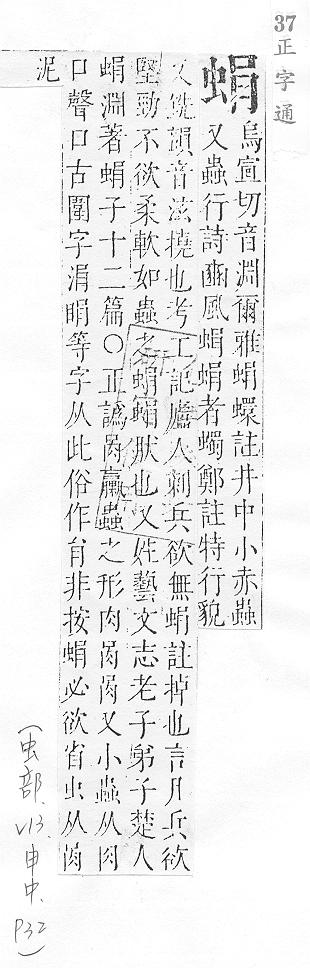 37正字通
蜎
烏宣切音淵爾雅蜎蠉註井中小赤蟲
又蟲行詩豳風蜎蜎者蠋鄭註特行貌
又銑韻音泫撓也考工記廬人刺兵欲無蜎註掉也言凡兵欲
堅勁不欲柔軟如蟲之蜎蜎狀也又姓藝文志老子弟子楚人
蜎淵著蜎子十二篇〇正譌肙蠃蟲之形肉肙肙又小蟲从肉
口聲口古圍字涓睊等字从此俗作肻非按蜎必欲省虫从肙
泥
(虫部、v13、申中、P32)